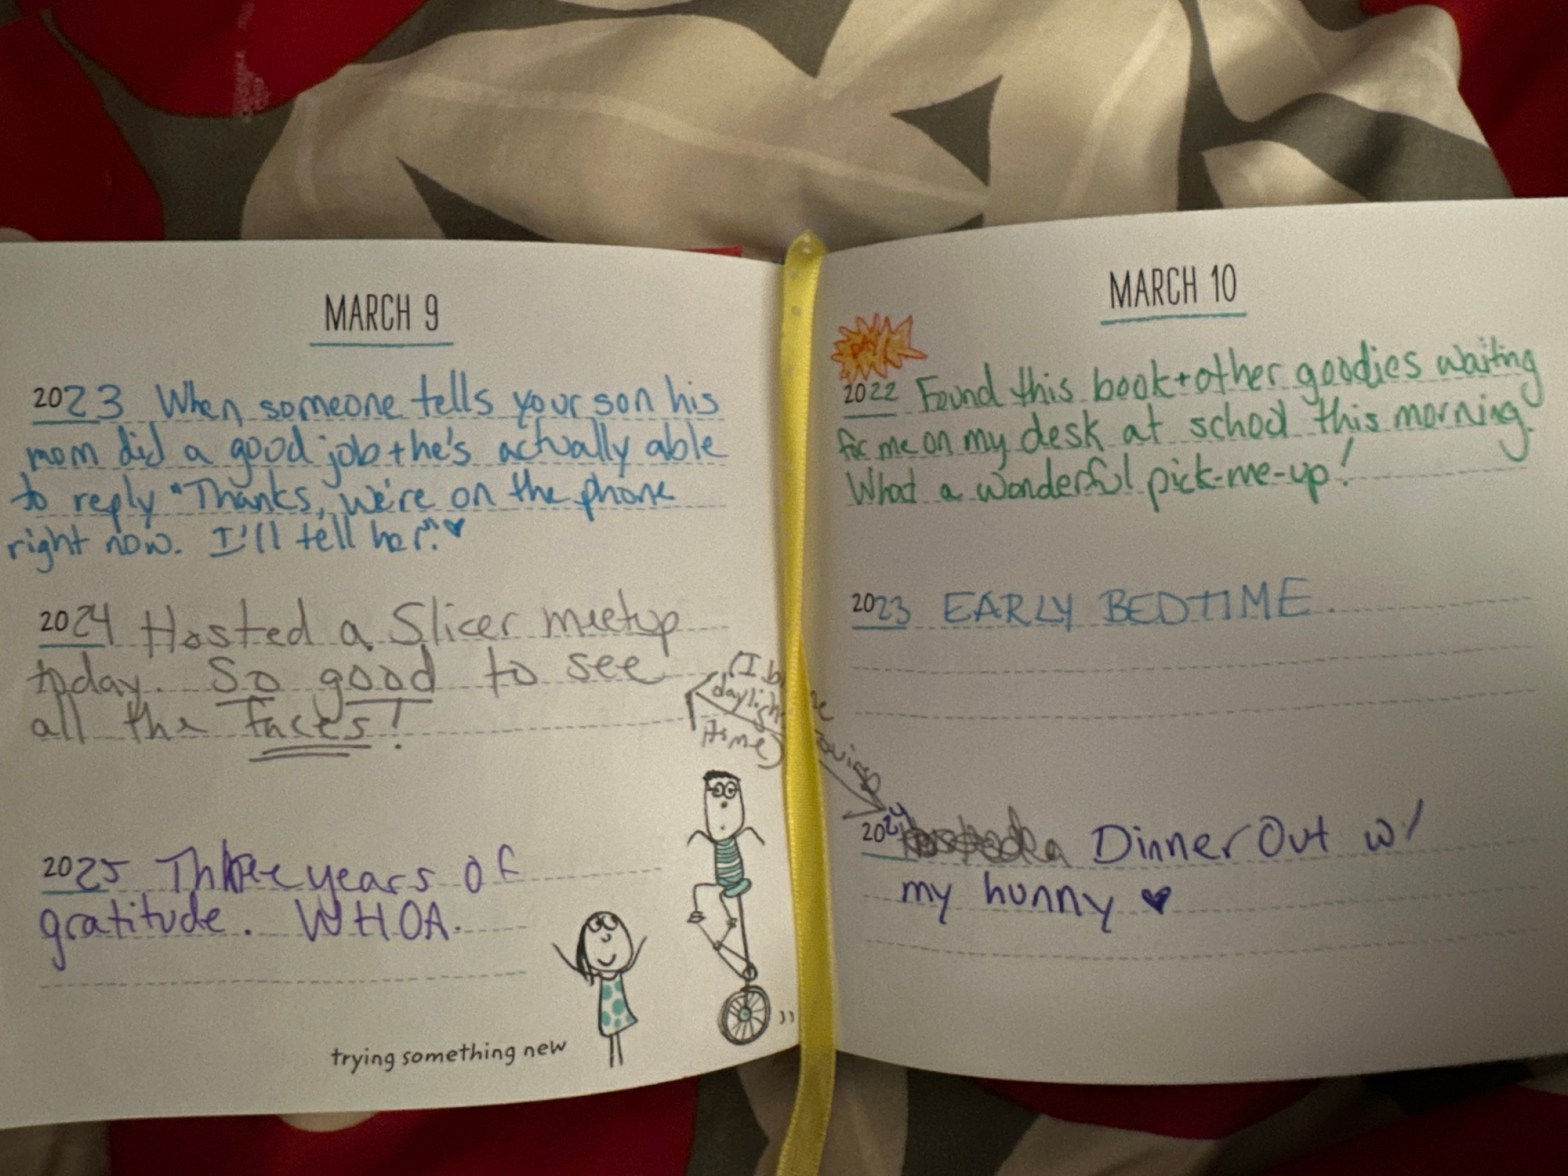 MARCH 9
2023 When someone tells your son his
mom did a good job + he's actually able
to reply "Thanks, we're on the phone
right now. I'll tell her."♥
2024 Hosted a Slicer meetup
today. So good to see
all the faces!
(I b
daylight
time)
2025 Three years of
gratitude. WHOA.
trying something new
MARCH 10
2022 Found this book + other goodies waiting
for me on my desk at school this morning.
What a wonderful pick-me-up!
2023 EARLY BEDTIME.
2024 Dinner Out w/
my hunny ♥